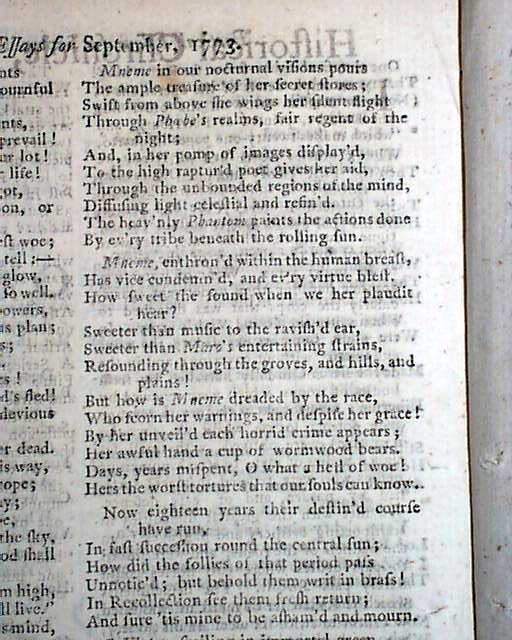 Eſſays for September, 1773.
nts
ournful
nts,
prevail!
ur lot!
life!
ot,
on, or
eſt woe;
tell:—
glow,
ſo well.
owers,
s plan;
s;
s!
d's fled!
devious
er dead.
is way,
rope;
y;
e,
the ſky,
od ſhall
m high,
ll live."
s mind,
Mneme in our nocturnal viſions pours
The ample treaſure of her ſecret ſtores;
Swift from above ſhe wings her ſilent flight
Through Phœbe's realms, fair regent of the
night;
And, in her pomp of images diſplay'd,
To the high raptur'd poet gives her aid,
Through the unbounded regions of the mind,
Diffuſing light celeſtial and refin'd.
The heav'nly Phantom paints the actions done
By ev'ry tribe beneath the rolling ſun.
Mneme, enthron'd within the human breaſt,
Has vice condemn'd, and ev'ry virtue bleſt.
How ſweet the ſound when we her plaudit
hear?
Sweeter than muſic to the raviſh'd ear,
Sweeter than Maro's entertaining ſtrains,
Reſounding through the groves, and hills, and
plains!
But how is Mneme dreaded by the race,
Who ſcorn her warnings, and deſpiſe her grace!
By her unveil'd each horrid crime appears;
Her awful hand a cup of wormwood bears.
Days, years miſpent, O what a hell of woe!
Hers the worſt tortures that our ſouls can know.
Now eighteen years their deſtin'd courſe
have run,
In faſt ſucceſſion round the central ſun;
How did the follies of that period paſs
Unnotic'd; but behold them writ in braſs!
In Recollection ſee them freſh return;
And ſure 'tis mine to be aſham'd and mourn.